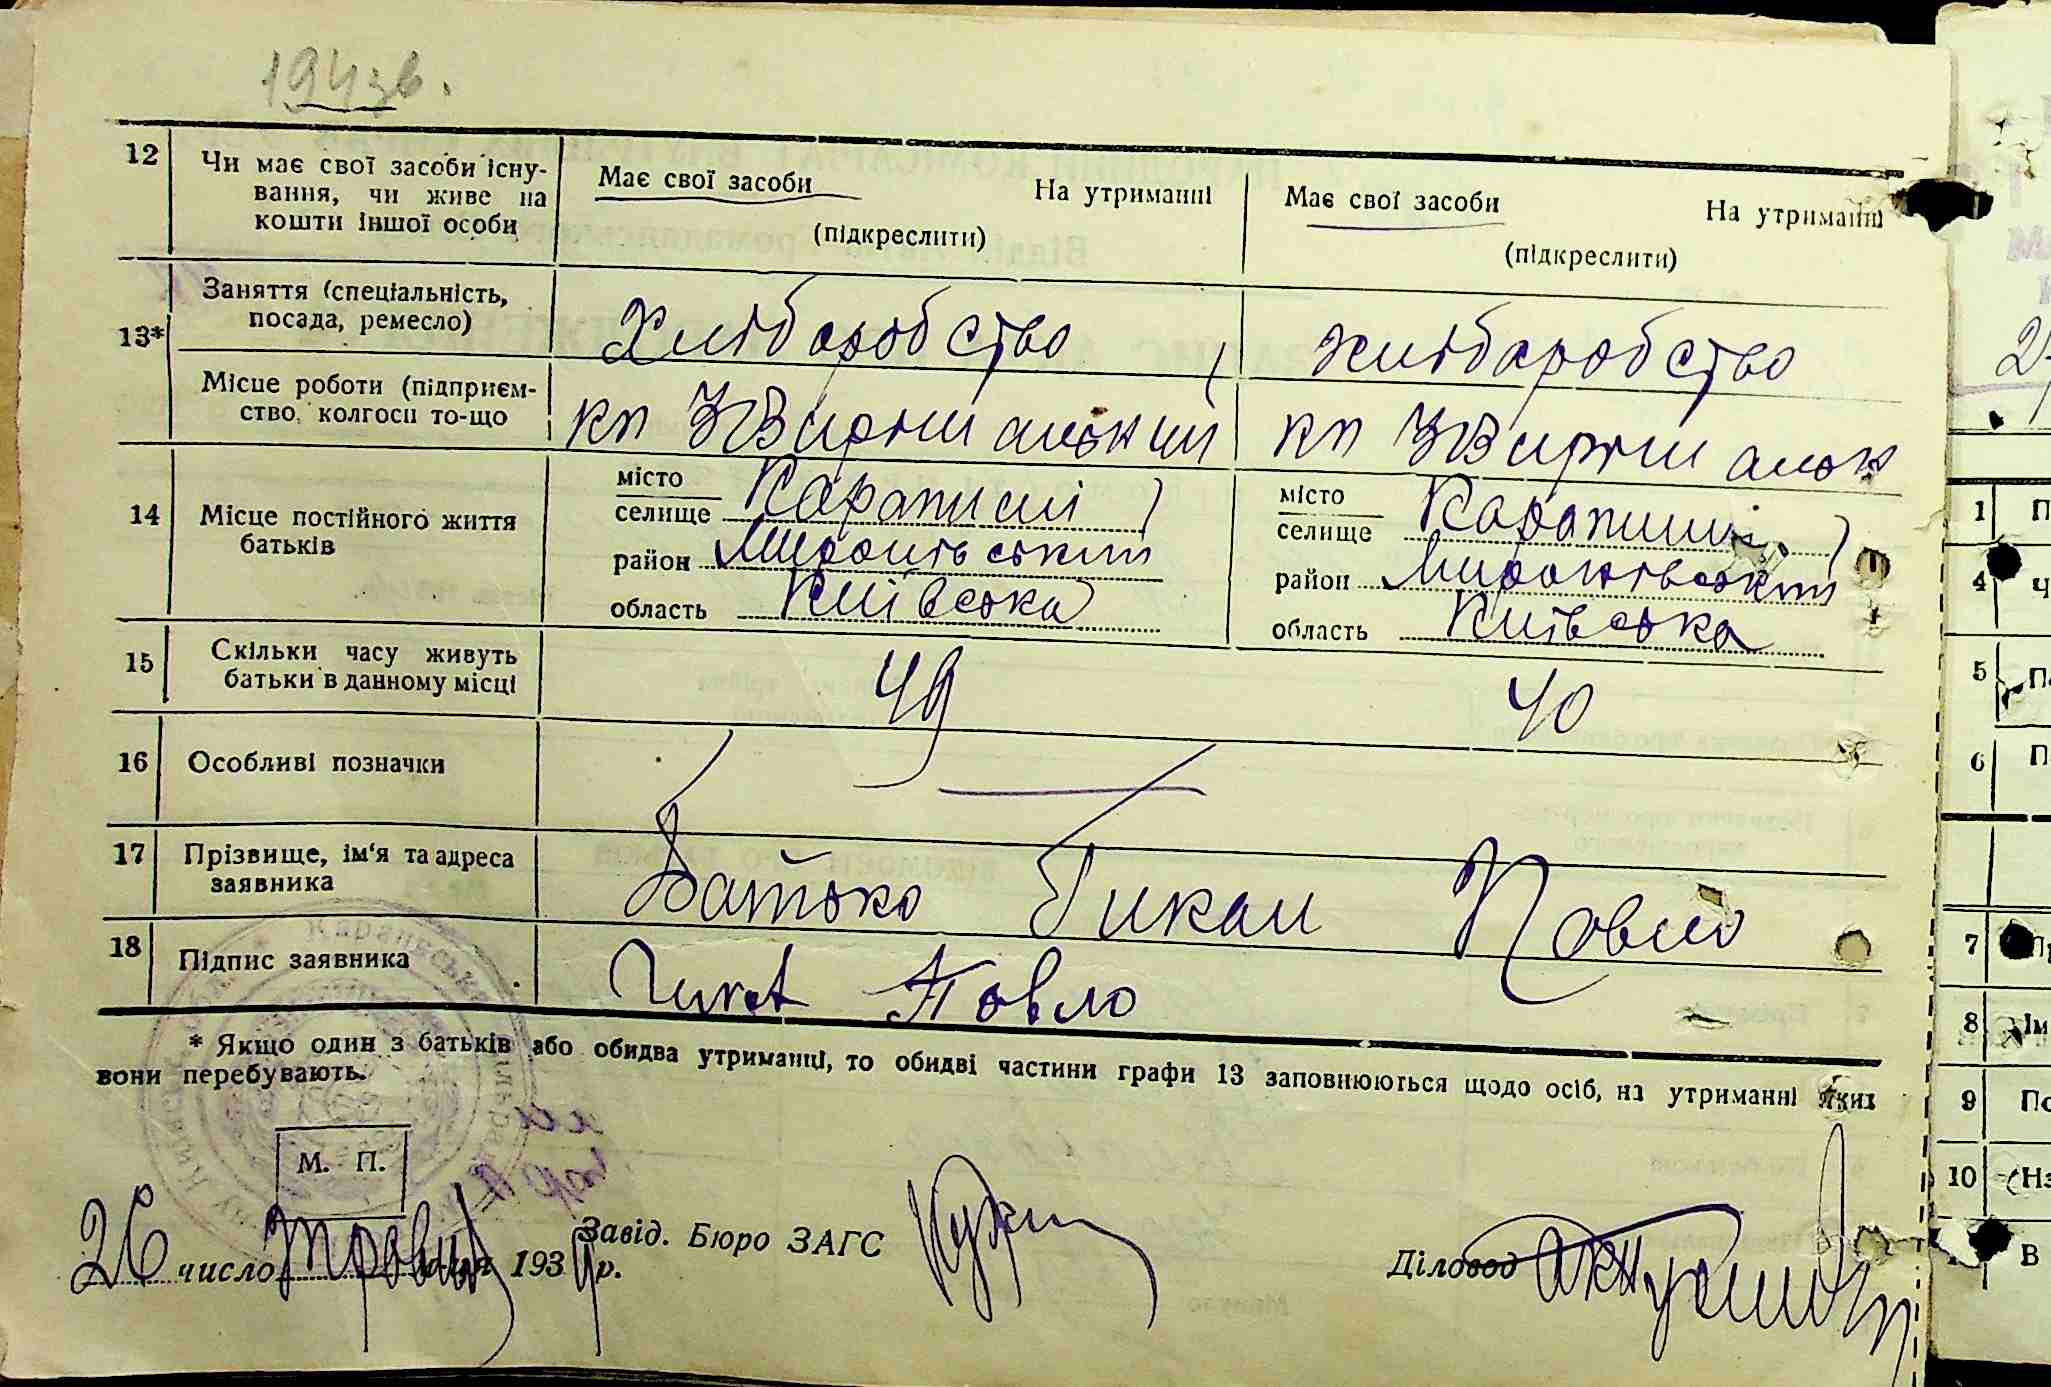 194зв.
12 Чи має свої засоби існу- Має свої засоби На утриманні Має свої засоби На утриманні
вання, чи живе на
кошти іншої особи (підкреслити) (підкреслити)
13* Заняття (спеціальність, Хліборобство хліборобство
посада, ремесло)
Місце роботи (підприєм- кп кп
ство, колгосп то-що
14 Місце постійного життя місто Карапиші місто Карапиші
батьків селище селище
район Миронівський район Миронівський
область Київська область Київська
15 Скільки часу живуть 49 40
батьки в данному місці
16 Особливі позначки
17 Прізвище, ім'я та адреса Батько Гикал Павло
заявника
18 Підпис заявника Павло
* Якщо один з батьків або обидва утриманці, то обидві частини графи 13 заповнюються щодо осіб, на утриманні яких
вони перебувають.
М. П.
26 число травня 1939 р. Завід. Бюро ЗАГС Діловод
1 П
4 Ч
5 П
6 П
7 Пр
8 Ім
9 По
10 На
В